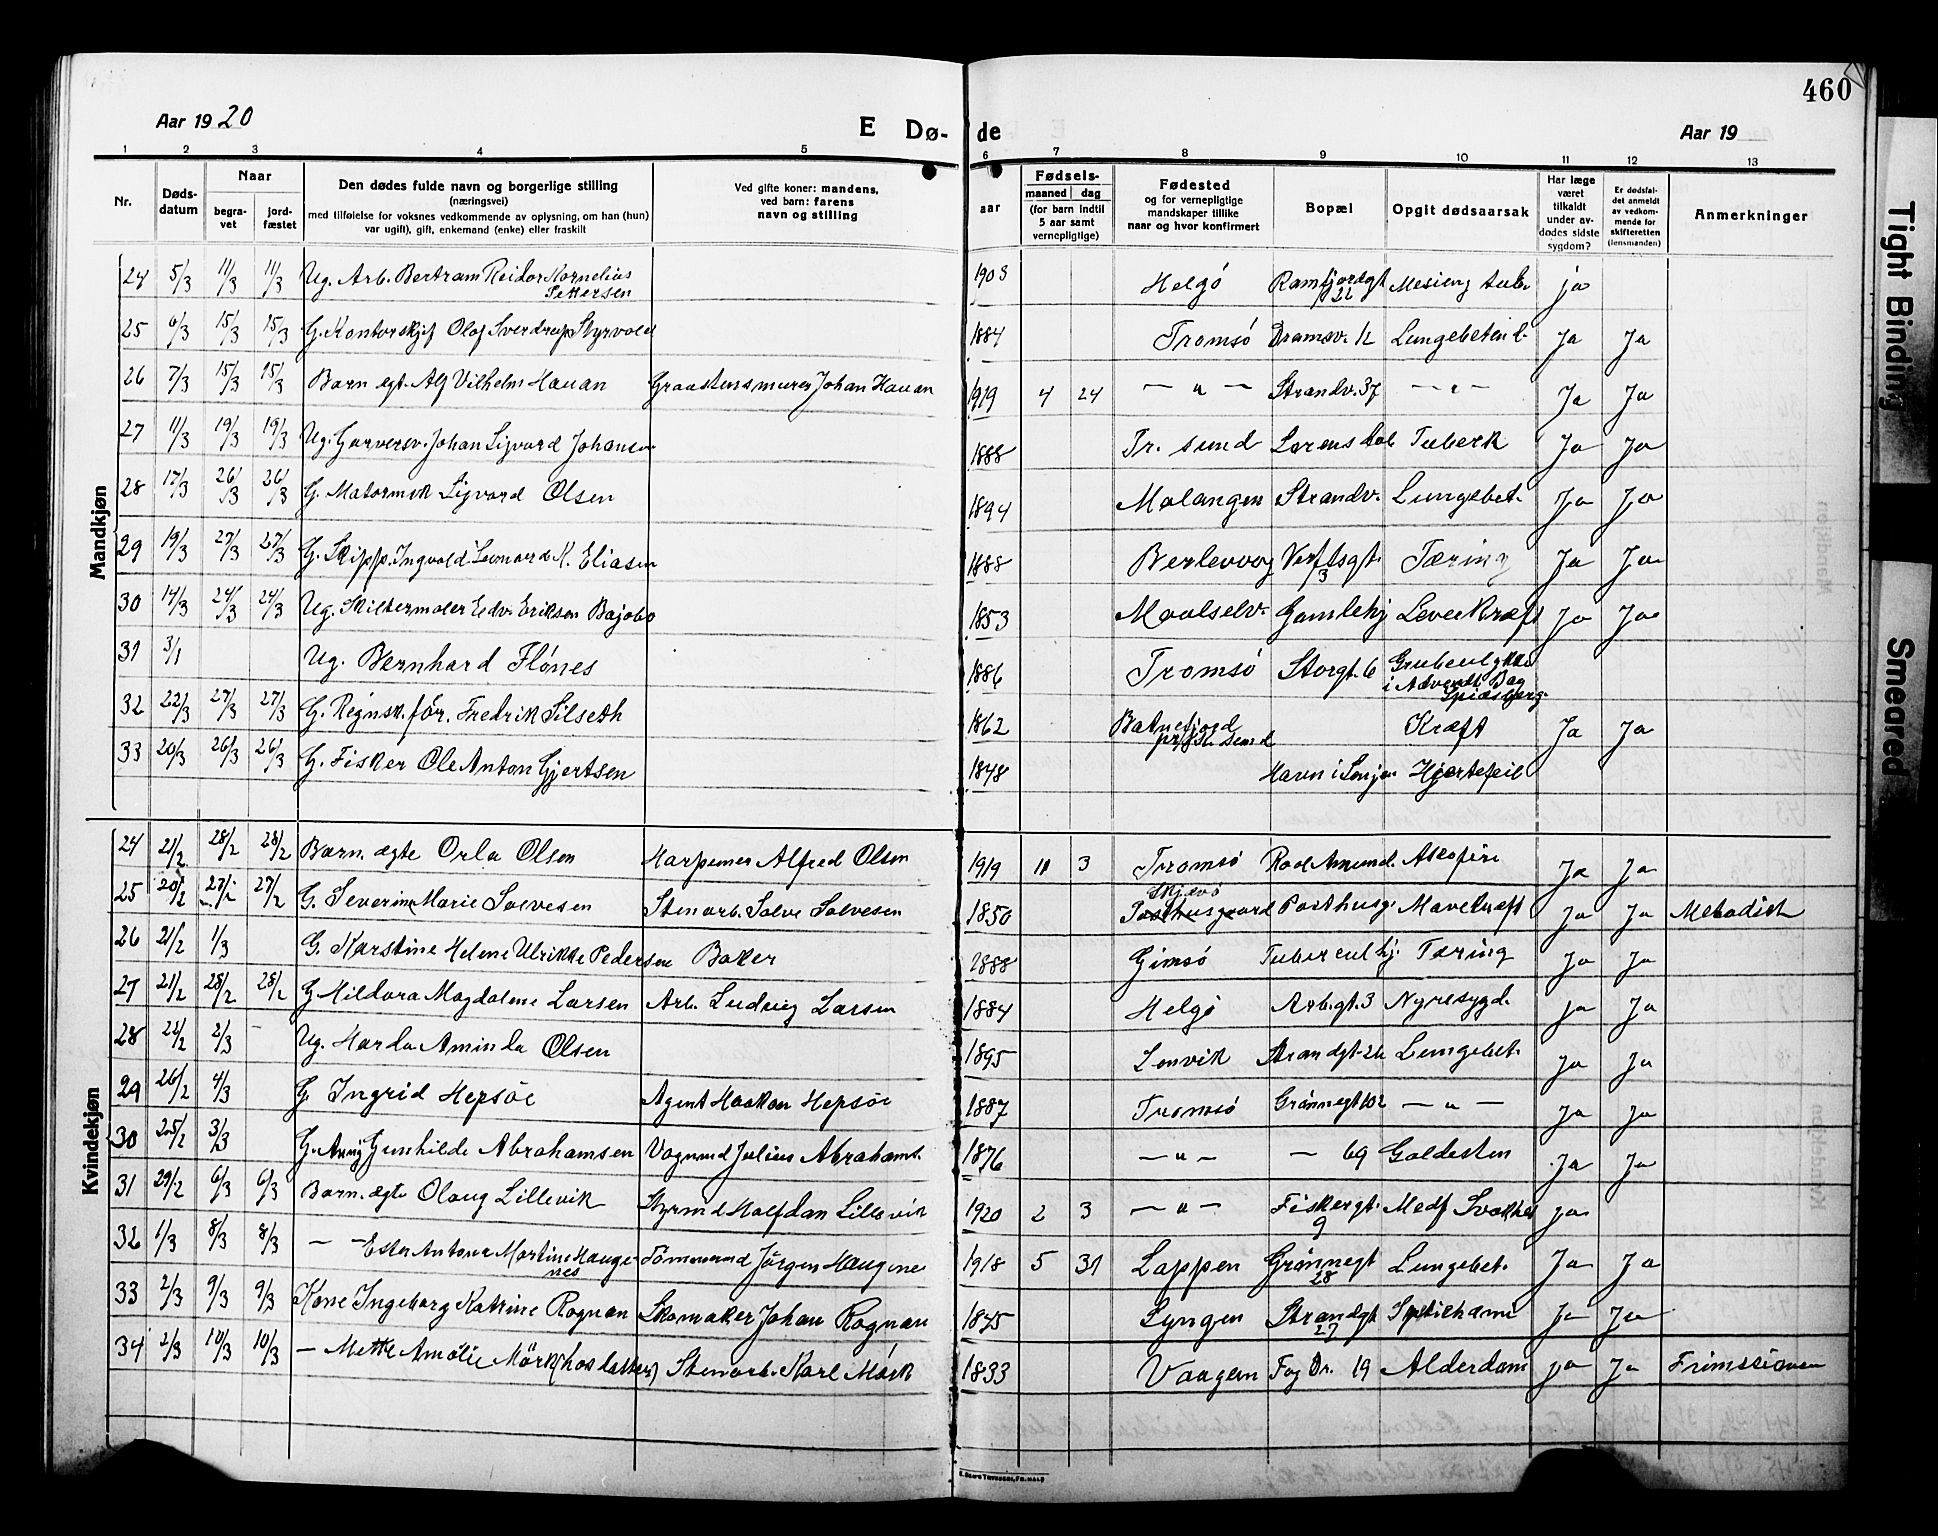 460
Aar 1920
E Dø-de
Aar 19
1 2 3 4 5 6 7 8 9 10 11 12 13
Nr.
Døds-datum
Naar
begra-vet
jord-fæstet
Den dødes fulde navn og borgerlige stilling
(næringsvei)
med tilføielse for voksnes vedkommende av oplysning, om han (hun)
var ugift), gift, enkemand (enke) eller fraskilt
Ved gifte koner: mandens,
ved barn: farens
navn og stilling
aar
Fødsels-
maaned dag
(for barn indtil
5 aar samt
vernepligtige)
Fødested
og for vernepligtige
mandskaper tillike
naar og hvor konfirmert
Bopæl
Opgit dødsaarsak
Har læge
været
tilkaldt
under av-
dødes sidste
sygdom?
Er dødsfal-
det anmeldt
av vedkom-
mende for
skifteretten
(lensmanden)
Anmerkninger
Mandkjøn
24 5/3 11/3 11/3 Ug. Arb. Bertram Reidar Kornelius Pettersen 1903 Helgö Ramfjordgt 22 ja
25 6/3 15/3 15/3 G. Kontorskjef Olaf Sverdrup Styrvold 1884 Tromsö Dramsv. 12 Lungebetend. Ja Ja
26 7/3 15/3 15/3 Barn egt. Alf Vilhelm Hauan Graastensmurer Johan Hauan 1919 4 24 — " — Strandv. 37 — " — Ja Ja
27 11/3 19/3 19/3 Ug. Garversv. Johan Sigvard Johansen 1888 Tr. sund Tuberk Ja Ja
28 17/3 26/3 26/3 G. Matormsk Sigvard Olsen 1894 Malangen Strandv. Lungebet. Ja Ja
29 19/3 27/3 27/3 G. Skipp. Ingvald Leonard K. Eliasen 1888 Berlevaag Verftsgt. 3 Tæring Ja Ja
30 14/3 24/3 24/3 Ug. Skiltermaler Edv. Eriksen Bajobo 1853 Maalselv. Gamlehj Leverkræft Ja Ja
31 3/1 Ug. Bernhard Flönes 1886 Tromsö Storgt. 6 Grubeulykke i Advent Bay Spidsberg.
32 22/3 27/3 27/3 G. Regnsk. för. Fredrik Silseth 1862 Batnefjord pr. Kr. sund Kræft Ja Ja
33 20/3 26/3 26/3 G. Fisker Ole Anton Gjertsen 1848 Havn i Senjen Hjertefeil
Kvindekjøn
24 21/2 28/2 28/2 Barn. ægte Orla Olsen Harpuner Alfred Olsen 1919 11 3 Tromsö Roal Amund. Ja Ja
25 20/2 27/2 27/2 G. Severine Marie Solvesen Stenarb. Solve Solvesen 1850 Skjervö Posthusgaard Posthusg. Mavekræft Ja Ja Metodist
26 21/2 1/3 G. Karstine Helene Ulrikke Pedersen Baker 1888 Gimsö Tubercul hj. Tæring Ja Ja
27 21/2 28/2 28/2 G Hildora Magdalene Larsen Arb. Ludvig Larsen 1884 Helgö Arb.gt. 3 Nyresygd. ja Ja
28 22/2 2/3 - Ug. Harda Aminda Olsen 1895 Lenvik Strandgt. 26 Lungebet. Ja Ja
29 26/2 4/3 G. Ingrid Hepsöe Agent Haakon Hepsöe 1887 Tromsö Grönnegt 102 — " — Ja Ja
30 25/2 3/3 G. Anny Gunhilde Abrahamsen Vognmd Julius Abrahams. 1876 — " — — 69 Galdesten Ja Ja
31 29/2 6/3 6/3 Barn. ægte Olaug Lillevik Styrmd Halfdan Lillevik 1920 2 3 — " — Fiskergt. 9 Medf Svakhet ja
32 1/3 8/3 8/3 — — Ester Antona Martine Haugenes Tömmermd Jörgen Haugene 1918 5 31 Lappen Grönnegt 28 Lungebet. Ja Ja
33 2/3 9/3 9/3 Kone Ingeborg Katrine Rognan Skomaker Johan Rognan 1845 Lyngen Strandgt 27 Ja Ja
34 2/3 10/3 10/3 — Mette Amalie Mörk Stenarb. Karl Mörk 1833 Vaagen Fog Dr. 19 Alderdom ja Ja Frimissionen
Tight Binding
Smeared